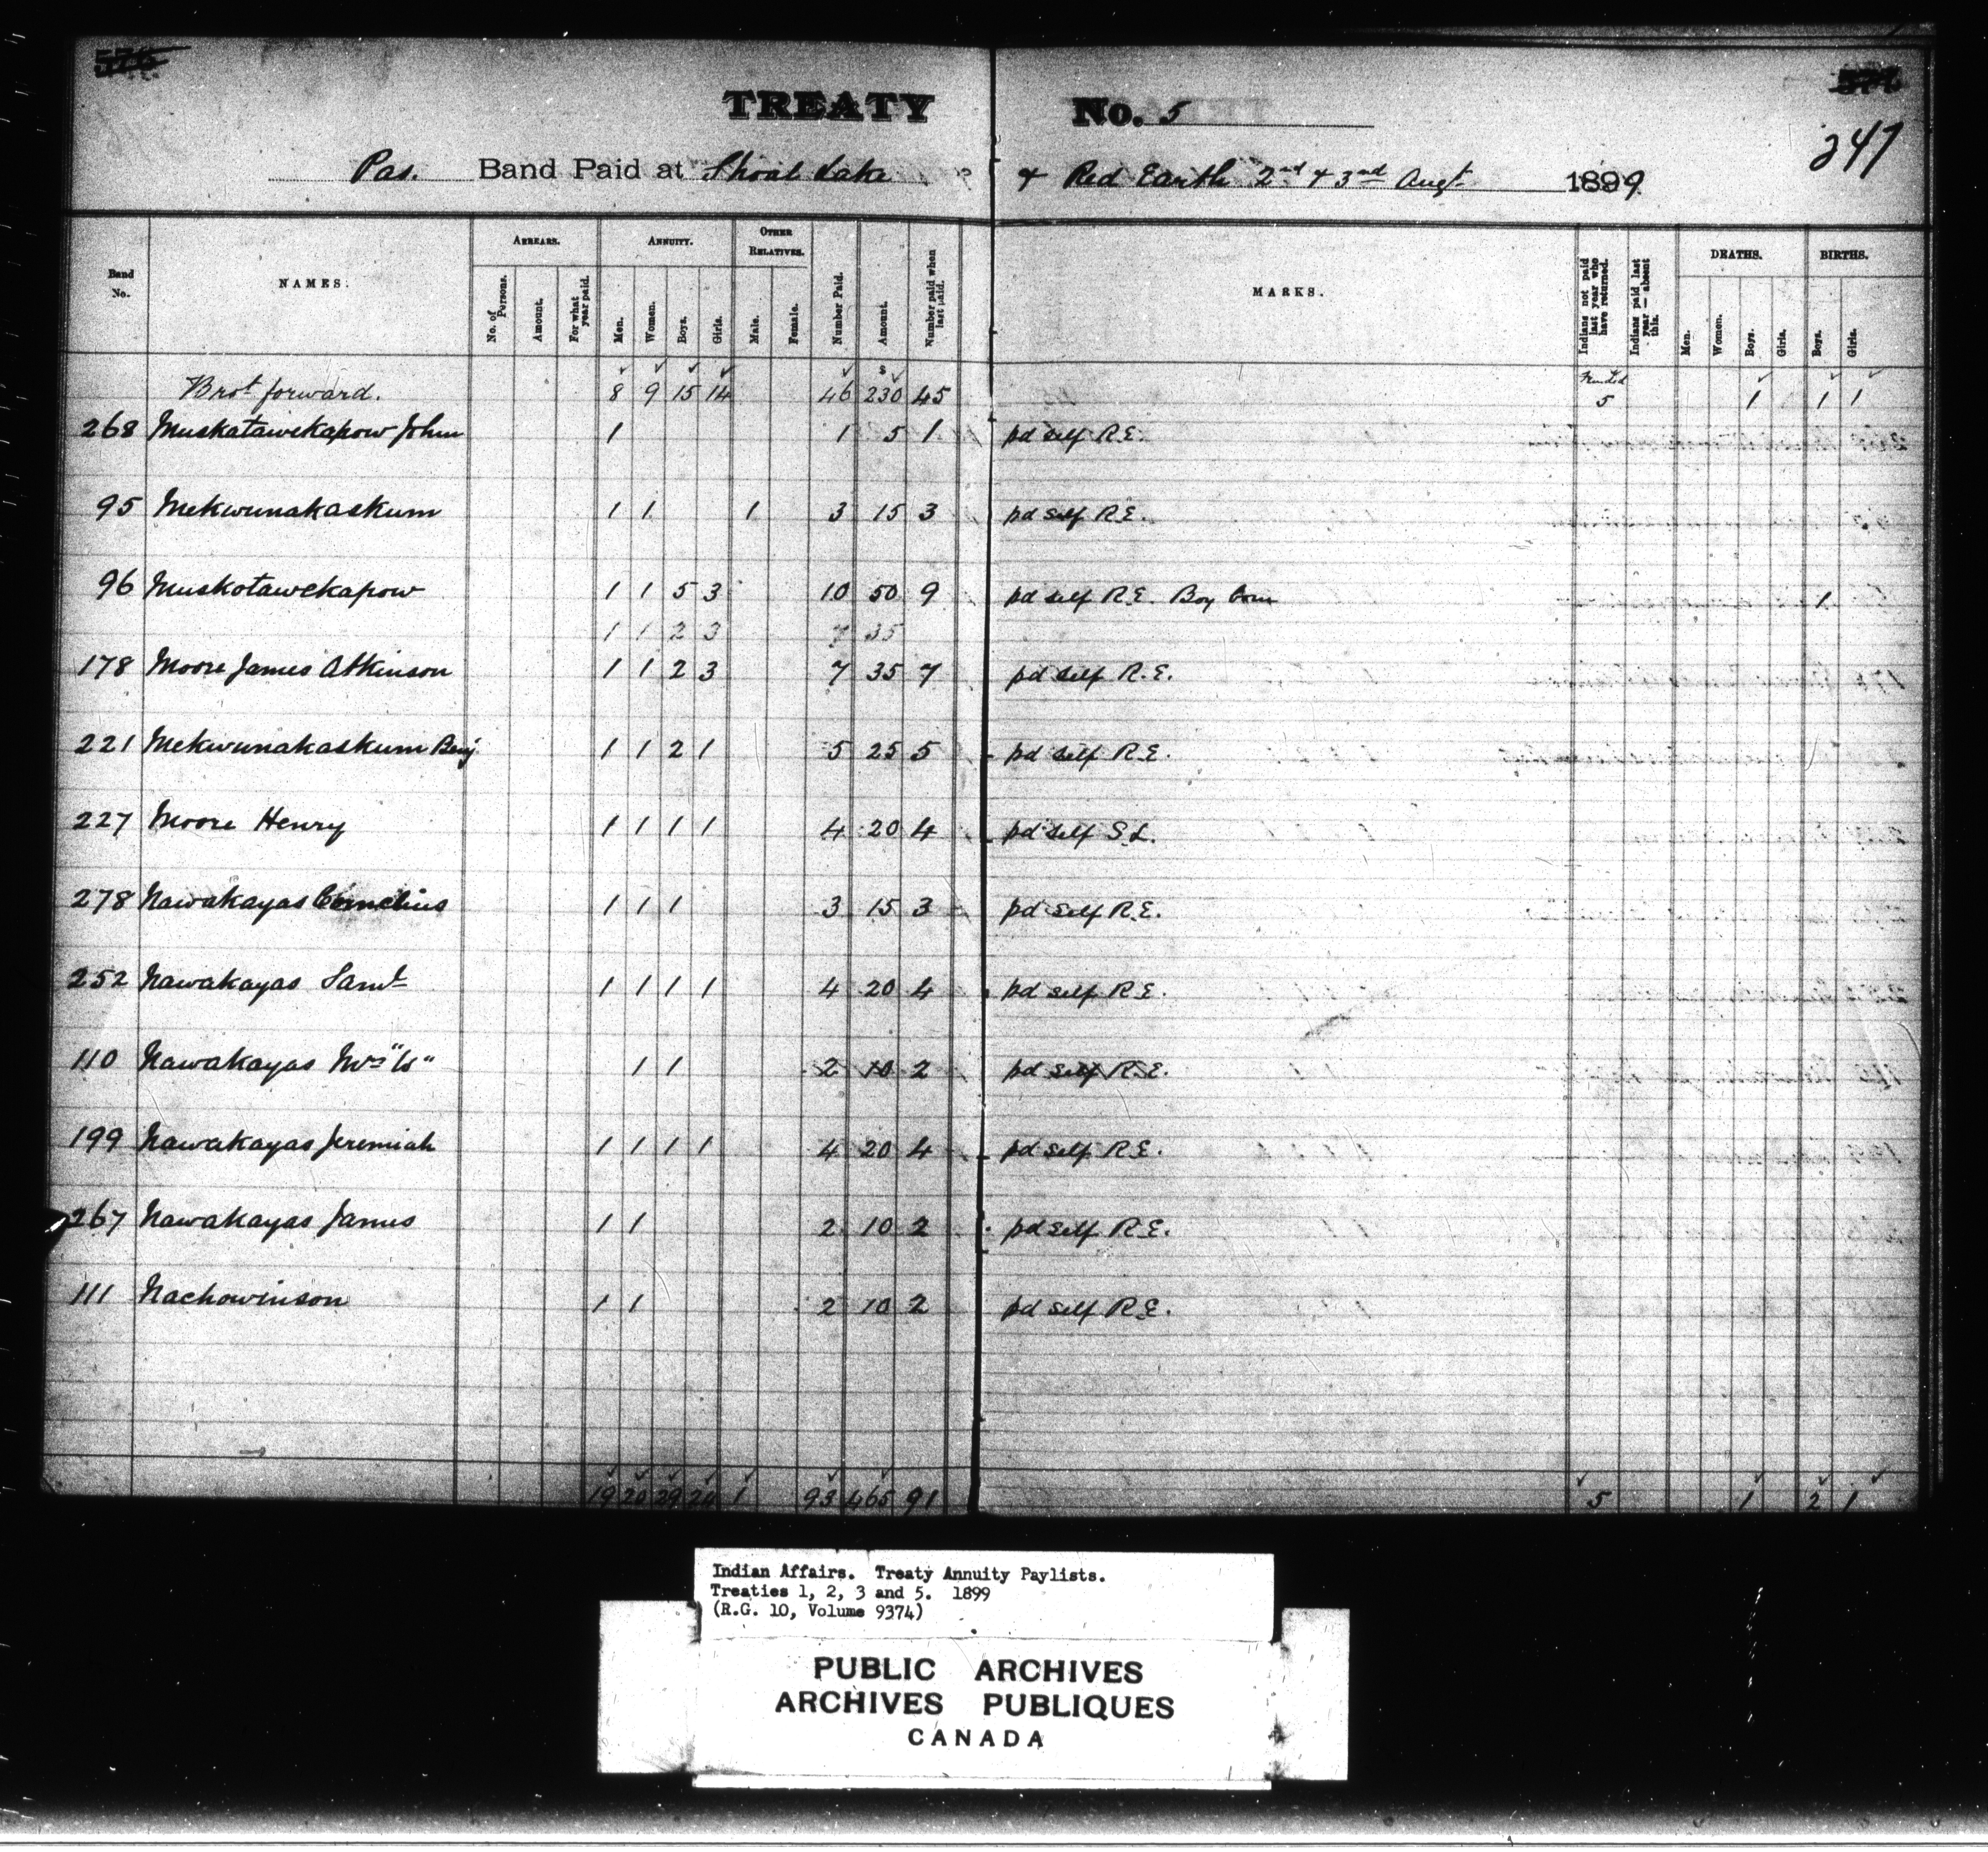 TREATY No. 5
247
Pas. Band Paid at Shoal Lake & Red Earth 2nd & 3rd Augt 1899
Band No. NAMES. ARREARS. No. of Persons. Amount. For what year paid. ANNUITY. Men. Women. Boys. Girls. OTHER RELATIVES. Male. Female. Number Paid. Amount. Number paid when last paid. MARKS. Indians not paid last year who have returned. Indians paid last year — absent this. DEATHS. Men. Women. Boys. Girls. BIRTHS. Boys. Girls.
Brot forward. 8 9 15 14 46 $ 230 45 5 1 1 1
268 Muskatawekapow John 1 1 5 1 pd self R.E.
95 Mekwunakaskum 1 1 1 3 15 3 pd self R.E.
96 Muskotawekapow 1 1 5 3 10 50 9 pd self R.E. Boy born 1
1 1 2 3 7 35
178 Moore James Atkinson 1 1 2 3 7 35 7 pd self R.E.
221 Mekwunakaskum Benj 1 1 2 1 5 25 5 pd self R.E.
227 Moore Henry 1 1 1 1 4 20 4 pd self S.L.
278 Nawakayas Cornelius 1 1 1 3 15 3 pd self R.E.
252 Nawakayas Saml 1 1 1 1 4 20 4 pd self R.E.
110 Nawakayas Mrs 1 1 2 10 2 pd self R.E.
199 Nawakayas Jeremiah 1 1 1 1 4 20 4 pd self R.E.
267 Nawakayas James 1 1 2 10 2 pd self R.E.
111 Nachowinson 1 1 2 10 2 pd self R.E.
19 20 29 24 1 93 465 91 5 1 2 1
Indian Affairs. Treaty Annuity Paylists.
Treaties 1, 2, 3 and 5. 1899
(R.G. 10, Volume 9374)
PUBLIC ARCHIVES
ARCHIVES PUBLIQUES
CANADA